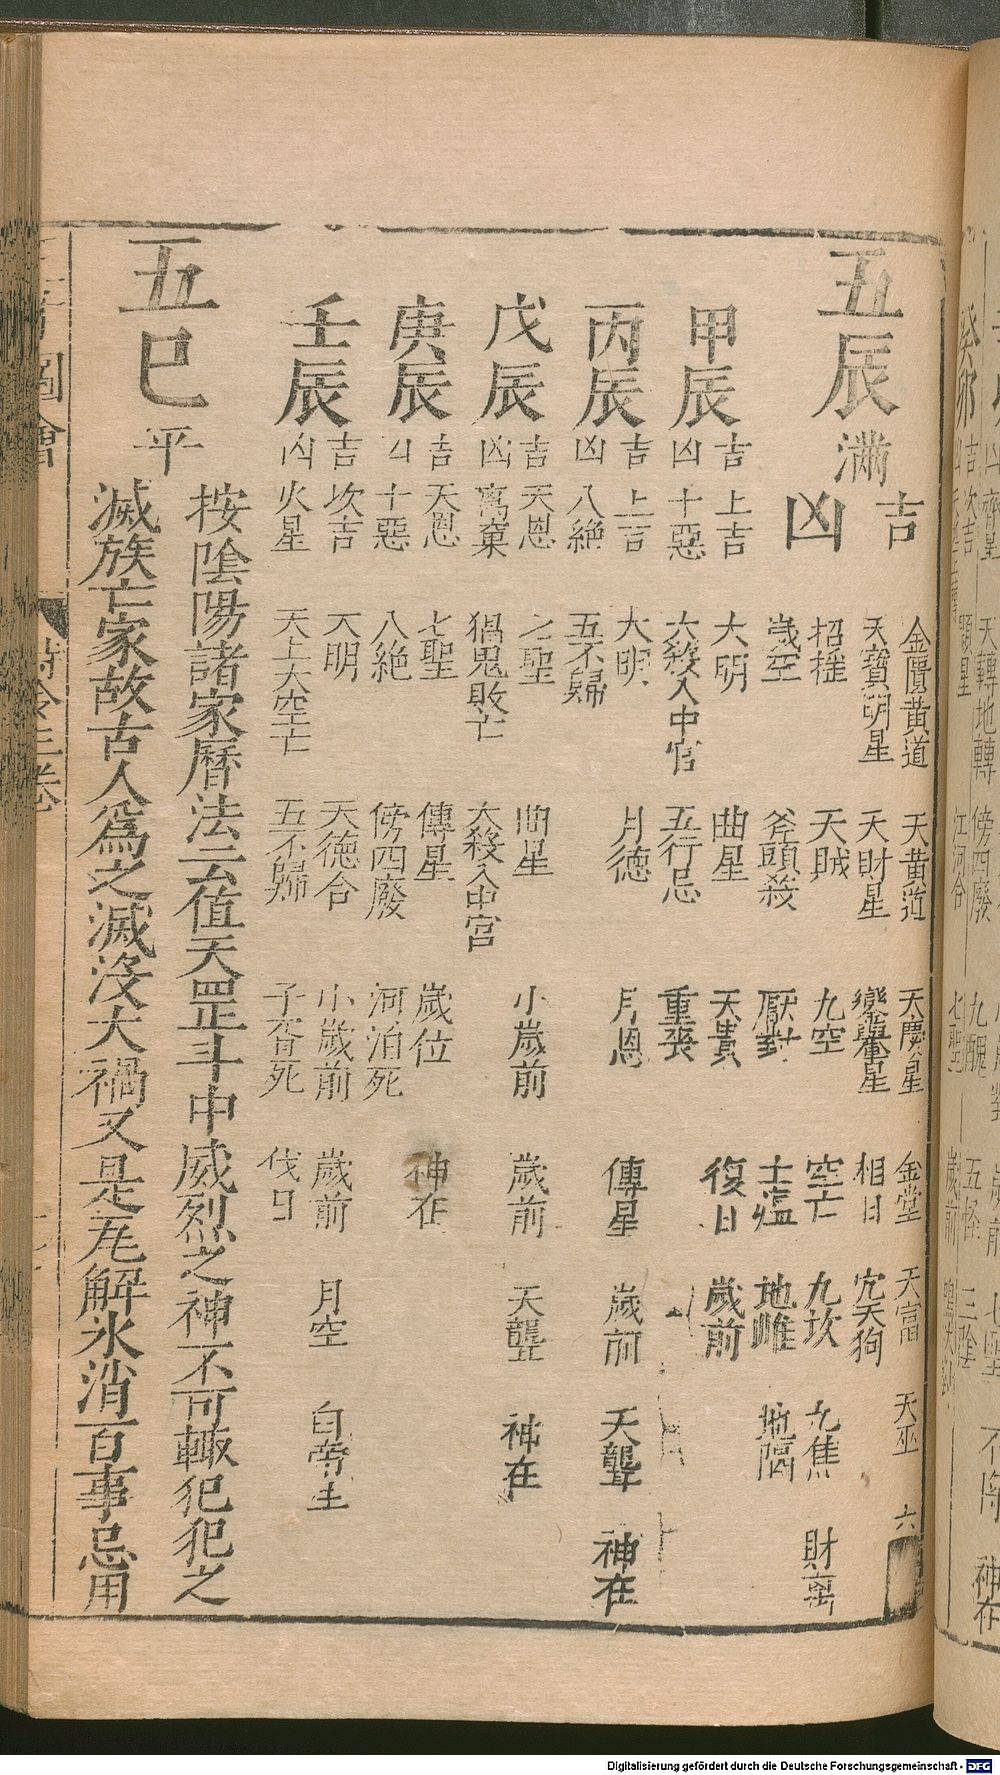 五辰 滿
吉 金匱黃道 天黃道 天慶星 金堂 天富 天巫 六
天寶明星 天財星 鑾輿星 相日 宂天狗
凶 招搖 天賊 九空 空亡 九坎 九焦 財离
歲空 斧頭殺 厭對 土瘟 地雌 地隔
甲辰
吉 上吉 大明 曲星 天貴 復日 歲前
凶 十惡 大殺入中宫 五行忌 重喪
丙辰
吉 上吉 大明 月德 月恩 傳星 歲前 天聾 神在
凶 八絶 五不歸
戊辰
吉 天恩 七聖 曲星 小歲前 歲前 天聾 神在
凶 离棄 猖鬼敗亡 大殺入中宫
庚辰
吉 天恩 七聖 傳星 歲位 神在
凶 十惡 八絶 傍四廢 河泊死
壬辰
吉 次吉 天明 天德合 小歲前 歲前 月空 白帝生
凶 火星 天上大空亡 五不歸 子胥死 伐日
五巳 平
按陰陽諸家曆法云值天罡斗中威烈之神不可輙犯犯之
滅族亡家故古人爲之滅沒大禍又是瓦解氷消百事忌用
圖會
時令三卷
Digitalisierung gefördert durch die Deutsche Forschungsgemeinschaft - DFG